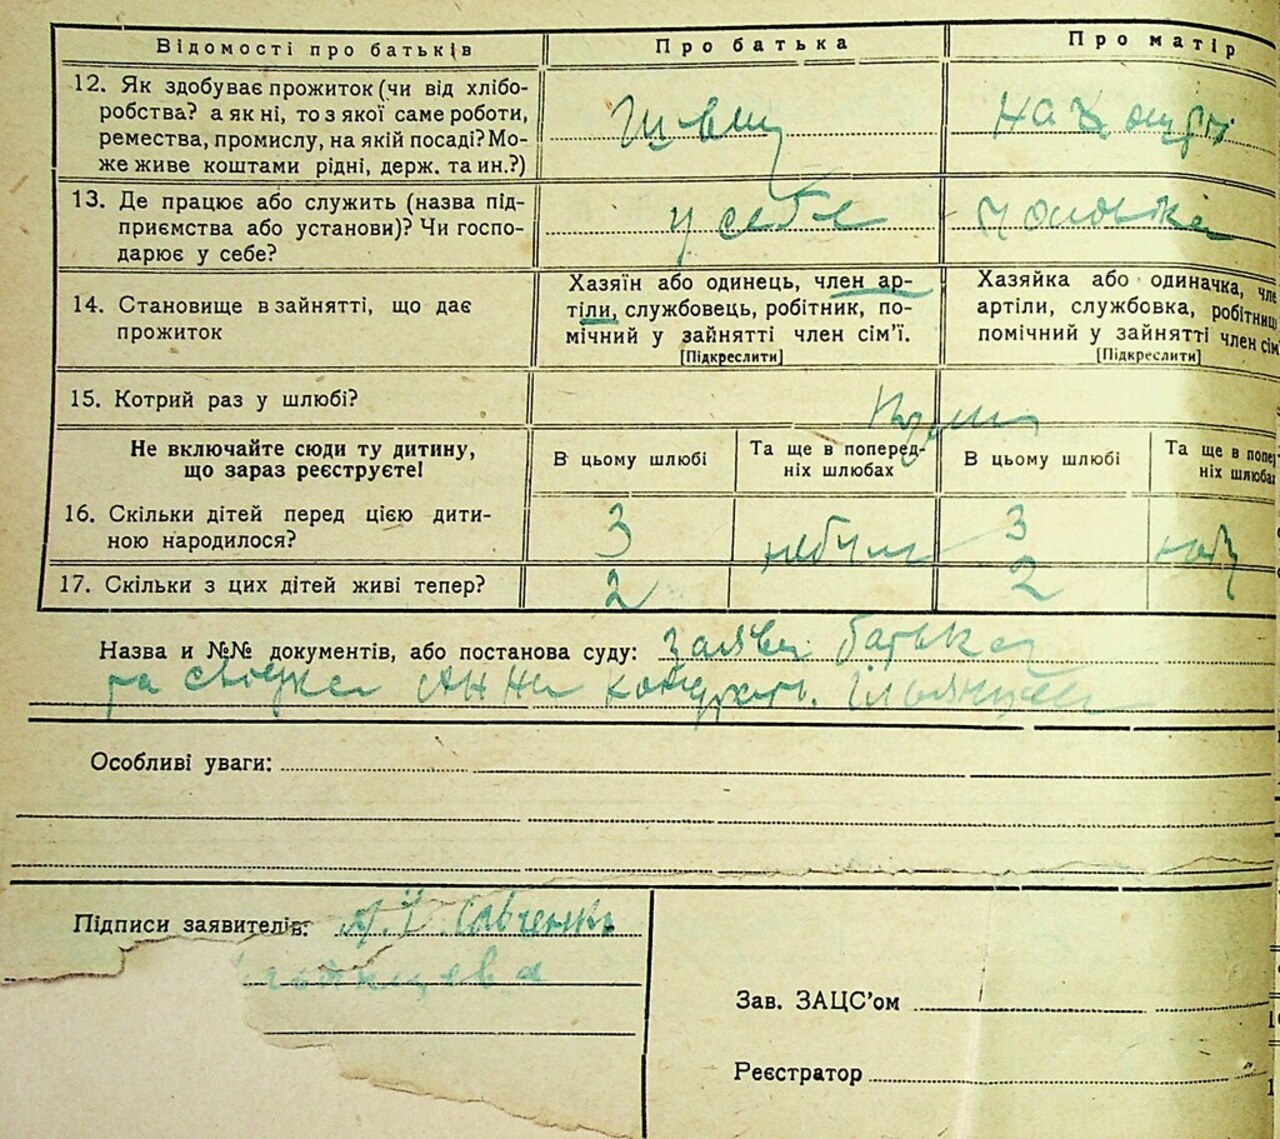 Відомості про батьків
Про батька
Про матір
12. Як здобуває прожиток (чи від хлібо-
робства? а як ні, то з якої саме роботи,
ремества, промислу, на якій посаді? Мо-
же живе коштами рідні, держ. та ин.?)
на
13. Де працює або служить (назва під-
приємства або установи)? Чи госпо-
дарює у себе?
у себе
чоловіка
14. Становище в зайнятті, що дає
прожиток
Хазяїн або одинець, член ар-
тіли, службовець, робітник, по-
мічний у зайнятті член сім’ї.
[Підкреслити]
Хазяйка або одиначка, чле
артіли, службовка, робітниц
помічний у зайнятті член сім’
[Підкреслити]
15. Котрий раз у шлюбі?
Не включайте сюди ту дитину,
що зараз реєструєте!
В цьому шлюбі
Та ще в поперед-
ніх шлюбах
В цьому шлюбі
Та ще в попер
ніх шлюбах
16. Скільки дітей перед цією дити-
ною народилося?
3
3
17. Скільки з цих дітей живі тепер?
2
2
Назва и №№ документів, або постанова суду: заява батька
та свідка Анни
Особливі уваги:
Підписи заявителів: А. Ї. Савченкъ
Зав. ЗАЦС’ом
Реєстратор